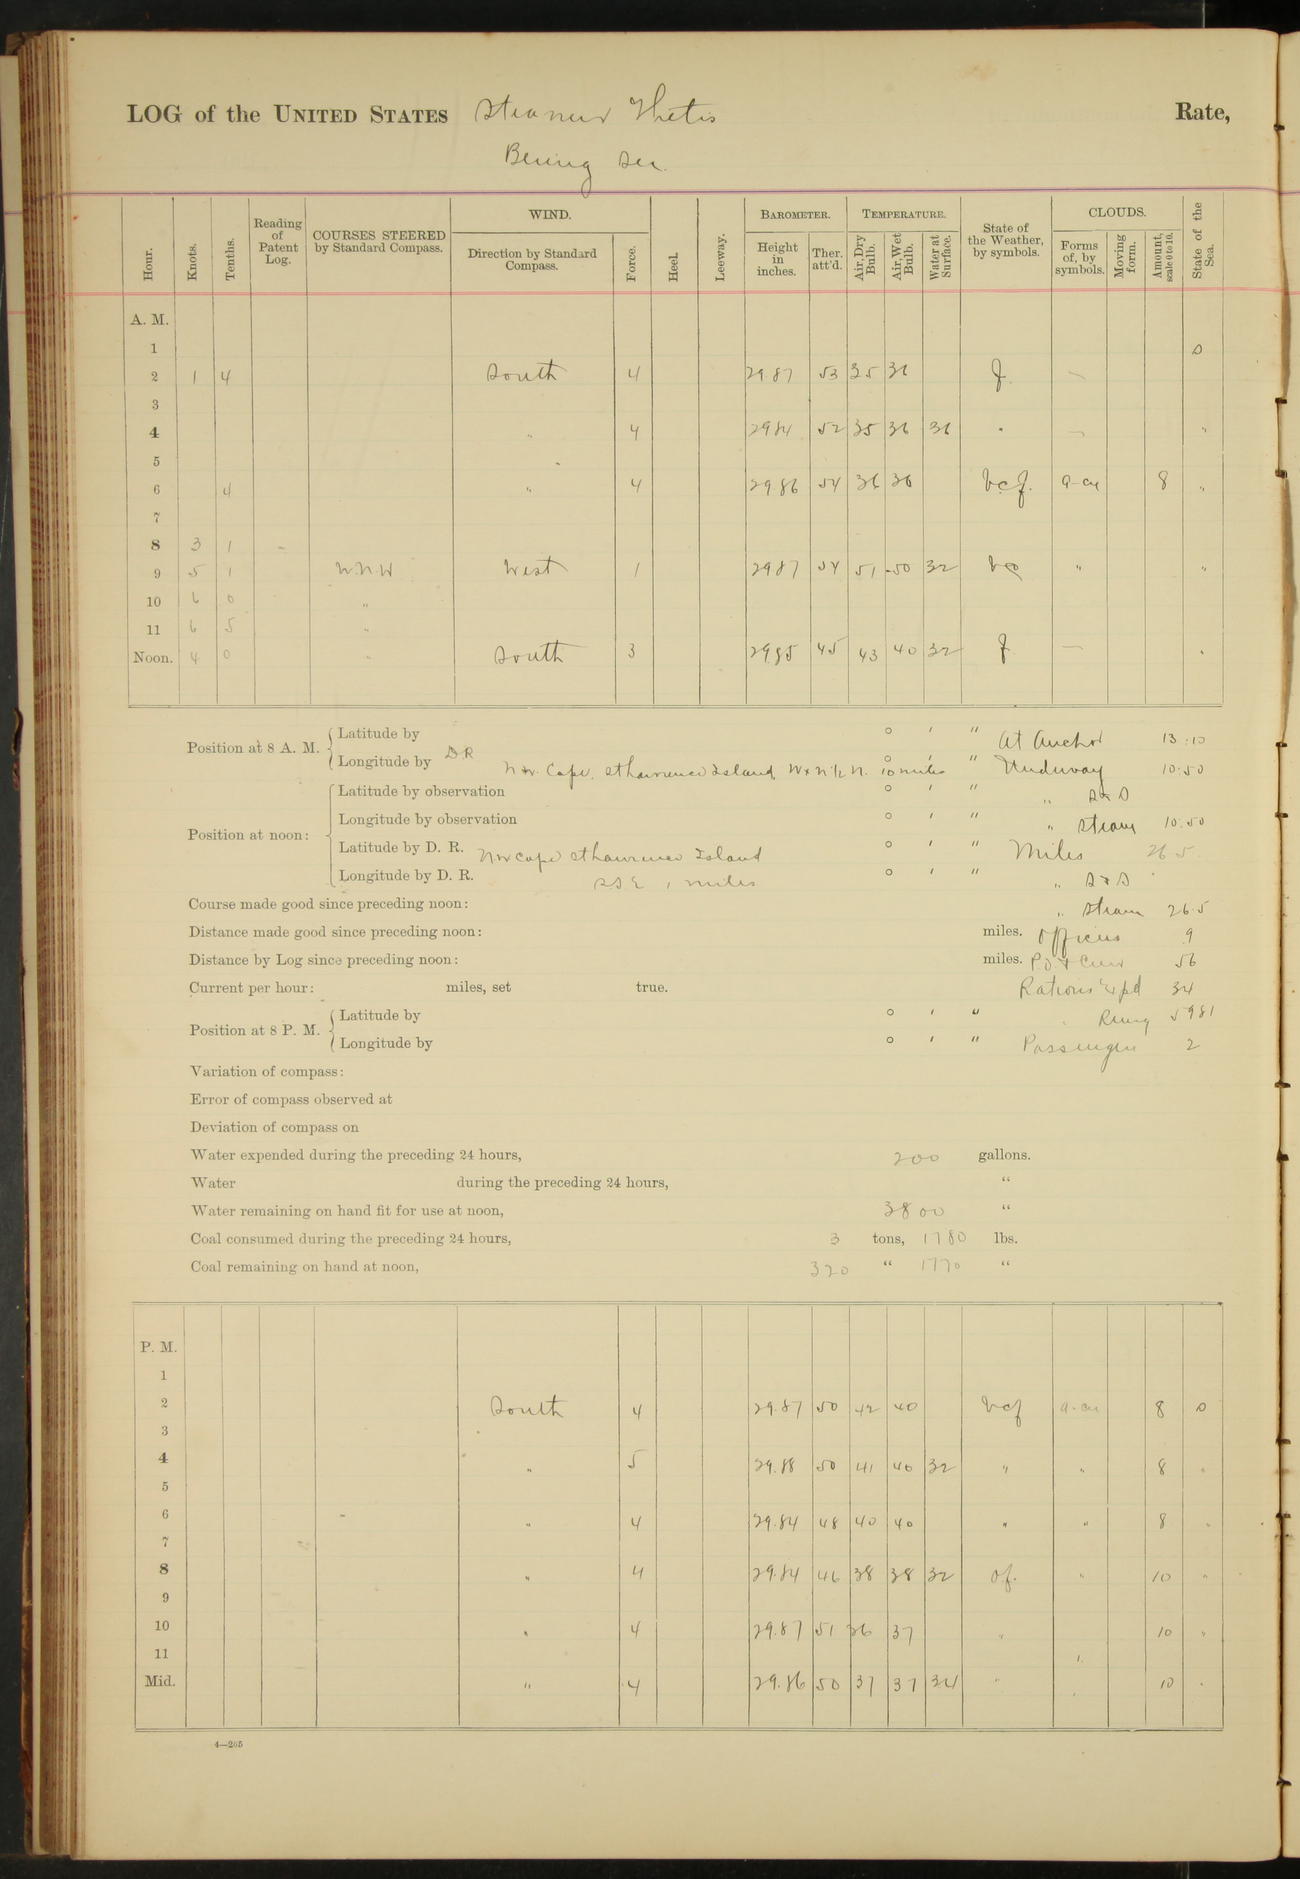 LOG of the UNITED STATES Steamer Thetis Rate,
Bering Sea.
Hour. Knots. Tenths. Reading of Patent Log. COURSES STEERED by Standard Compass. WIND. Direction by Standard Compass. Force. Heel. Leeway. BAROMETER. Height in inches. Ther. att'd. TEMPERATURE. Air, Dry Bulb. Air, Wet Bulb. Water at Surface. State of the Weather, by symbols. CLOUDS. Forms of, by symbols. Moving form. Amount, scale 0 to 10. State of the Sea.
A. M.
1 S
2 1 4 South 4 29.87 53 35 36 f. —
3
4 " 4 29 84 52 35 36 36 " — "
5
6 4 " 4 29 86 54 36 36 bcf. a-cu 8 "
7
8 3 1
9 5 1 WNW West 1 29 87 54 51 50 32 " "
10 6 0 "
11 6 5 "
Noon. 4 0 " South 3 29 85 45 43 40 32 f. — "
Position at 8 A. M. Latitude by ° ′ ″ At Anchor 13:10
Longitude by DR NW. Cape, St Lawrence Island, W x N ½ N. 10 miles ° ′ ″ Underway 10:50
Latitude by observation ° ′ ″ " S & S
Position at noon: Longitude by observation ° ′ ″ " Steam 10:50
Latitude by D. R. NW Cape St Lawrence Island ° ′ ″ Miles 26 5
Longitude by D. R. SSE 1 miles ° ′ ″ " S & S
Course made good since preceding noon: " Steam 26.5
Distance made good since preceding noon: miles. Officers 9
Distance by Log since preceding noon: miles. P.O & Crew 56
Current per hour: miles, set true. Rations Expd 34
Position at 8 P. M. Latitude by ° ′ ″ " Remg 5981
Longitude by ° ′ ″ Passengers 2
Variation of compass:
Error of compass observed at
Deviation of compass on
Water expended during the preceding 24 hours, 200 gallons.
Water during the preceding 24 hours, "
Water remaining on hand fit for use at noon, 3800 "
Coal consumed during the preceding 24 hours, 3 tons, 1780 lbs.
Coal remaining on hand at noon, 320 " 1770 "
P. M.
1
2 South 4 29.87 50 42 40 bcf a-cu 8 S
3
4 " 5 29.88 50 41 40 32 " " 8 "
5
6 " 4 29.84 48 40 40 " " 8 "
7
8 " 4 29.84 46 38 38 32 of. " 10 "
9
10 " 4 29.87 51 36 37 " 10 "
11 "
Mid. " 4 29.86 50 37 37 34 " " 10 "
4—205